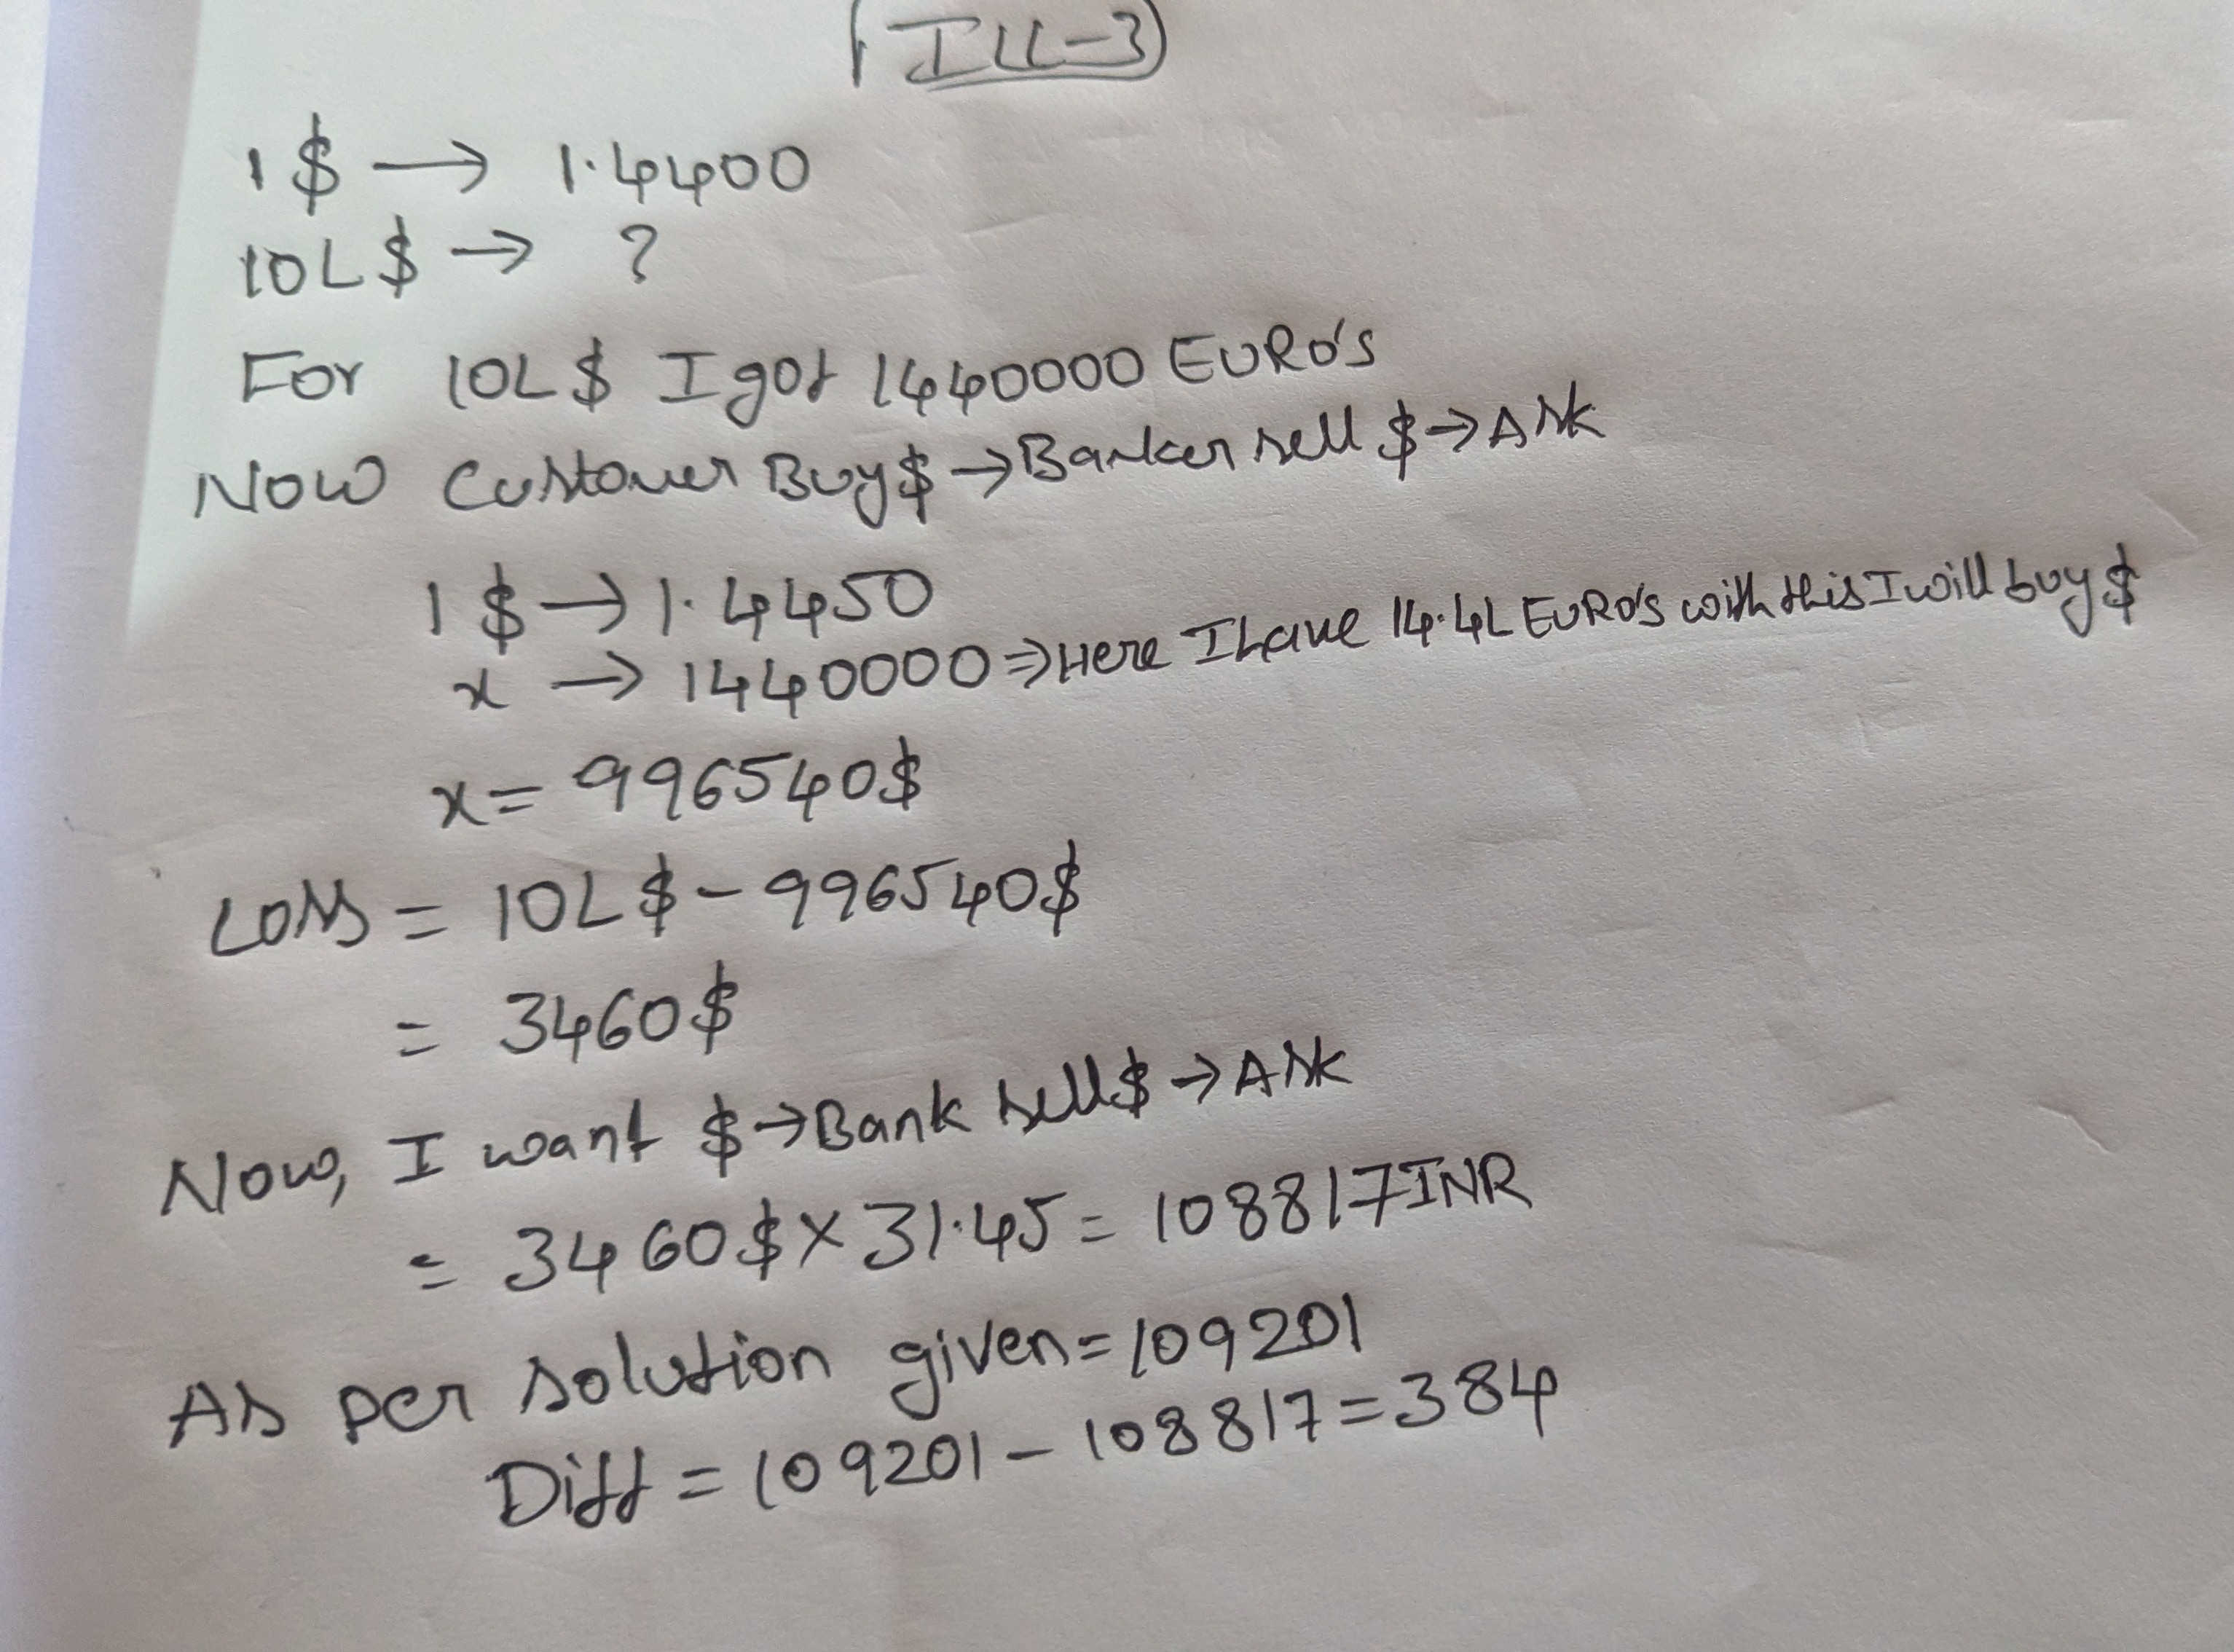 ILL-3
1$ → 1.4400
10L$ → ?
For 10L$ I got 1440000 EURO's
Now Customer Buy$ → Banker sell $ → Ask
1$ → 1.4450
x → 1440000 ⇒ Here I have 14.4L EURO's with this I will buy $
x = 996540$
Loss = 10L$ - 996540$
= 3460$
Now, I want $ → Bank sell$ → Ask
= 3460$ × 31.45 = 108817 INR
As per solution given = 109201
Diff = 109201 - 108817 = 384